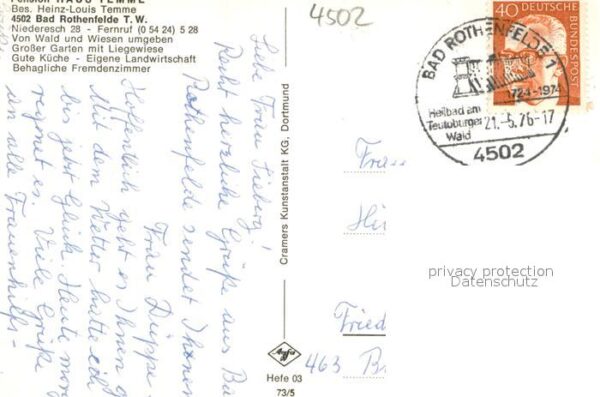 Pension HAUS TEMME
Bes. Heinz-Louis Temme
4502 Bad Rothenfelde T. W.
Niederesch 28 - Fernruf (0 54 24) 5 28
Von Wald und Wiesen umgeben
Großer Garten mit Liegewiese
Gute Küche - Eigene Landwirtschaft
Behagliche Fremdenzimmer
Liebe Frau Sieberg!
Recht herzliche Grüße aus Bad
Rothenfelde sendet Ihnen
Frau Düppe.
Hoffentlich geht es Ihnen g
Mit dem Wetter hatte ich
bis jetzt Glück. Heute mor
regnet es. Viele Grüße
an alle Frauenhilfs-
Cramers Kunstanstalt KG, Dortmund
Agfa
Hefe 03
73/5
4502
40
DEUTSCHE
BUNDESPOST
BAD ROTHENFELDE 1
1724-1974
Heilbad am
Teutoburger
Wald
21.-5.76-17
4502
Frau
Fried
463 B
privacy protection
Datenschutz